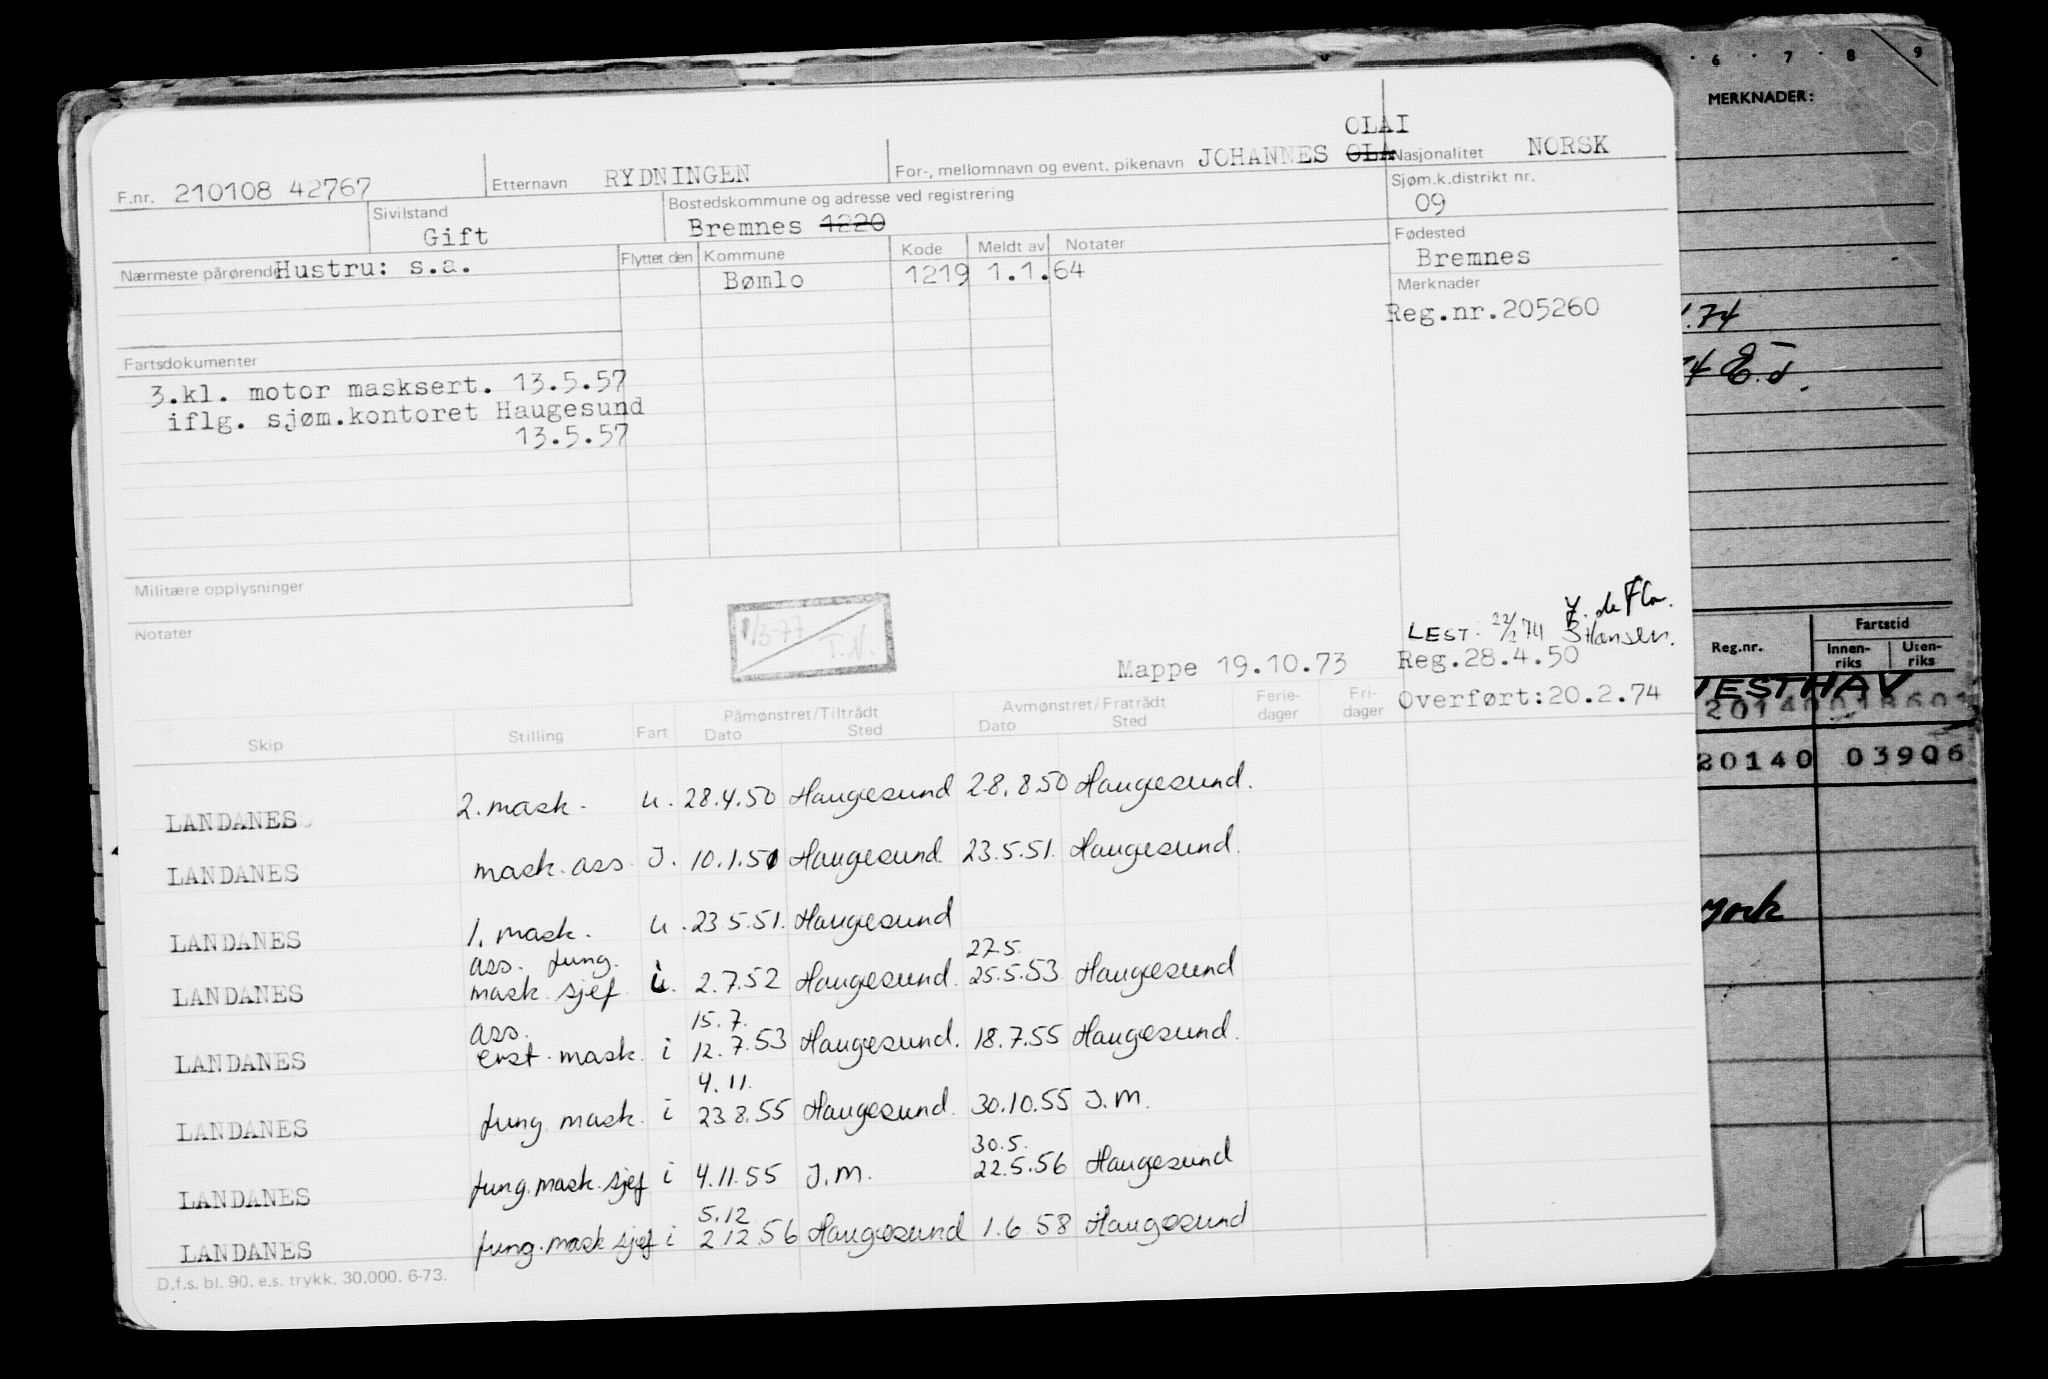 OLAI
F.nr. 210108 42767 Etternavn RYDNINGEN For-, mellomnavn og event. pikenavn JOHANNES OLA Nasjonalitet NORSK
Sivilstand Gift Bostedskommune og adresse ved registrering Bremnes 1220 Sjøm.k.distrikt nr. 09
Nærmeste pårørende Hustru: s.a. Flyttet den Kommune Kode Meldt av Notater Fødested
Bømlo 1219 1.1.64 Bremnes
Merknader
Reg.nr.205260
Fartsdokumenter
3.kl. motor masksert. 13.5.57
iflg. sjøm.kontoret Haugesund
13.5.57
Militære opplysninger
Notater
1/3-77
T.N.
LEST: 22/2 74 Hansen.
Mappe 19.10.73 Reg.28.4.50
Overført:20.2.74
Skip Stilling Fart Påmønstret/Tiltrådt Dato Sted Avmønstret/Fratrådt Dato Sted Ferie-dager Fri-dager
LANDANES 2. mask. u. 28.4.50 Haugesund 28.8.50 Haugesund.
LANDANES mask. ass. I. 10.1.51 Haugesund. 23.5.51. Haugesund.
LANDANES 1. mask. u. 23.5.51. Haugesund
ass. fung. 27.5.
LANDANES mask. sjef u. 2.7.52 Haugesund. 25.5.53 Haugesund
ass. 15.7.
LANDANES erst. mask. i 12.7.53 Haugesund. 18.7.55 Haugesund.
4.11.
LANDANES fung. mask. i 23.8.55 Haugesund. 30.10.55 I.M.
30.5.
LANDANES fung. mask. sjef i 4.11.55 I.M. 22.5.56 Haugesund
5.12
LANDANES fung. mask sjef i 2.12.56 Haugesund 1.6.58 Haugesund
D.f.s. bl. 90. e.s. trykk. 30.000. 6-73.
6 7 8 9
MERKNADER:
.74
E.ö.
Reg.nr. Fartstid
Innen-riks Uten-riks
VESTHAV
20140
20140 03906
york